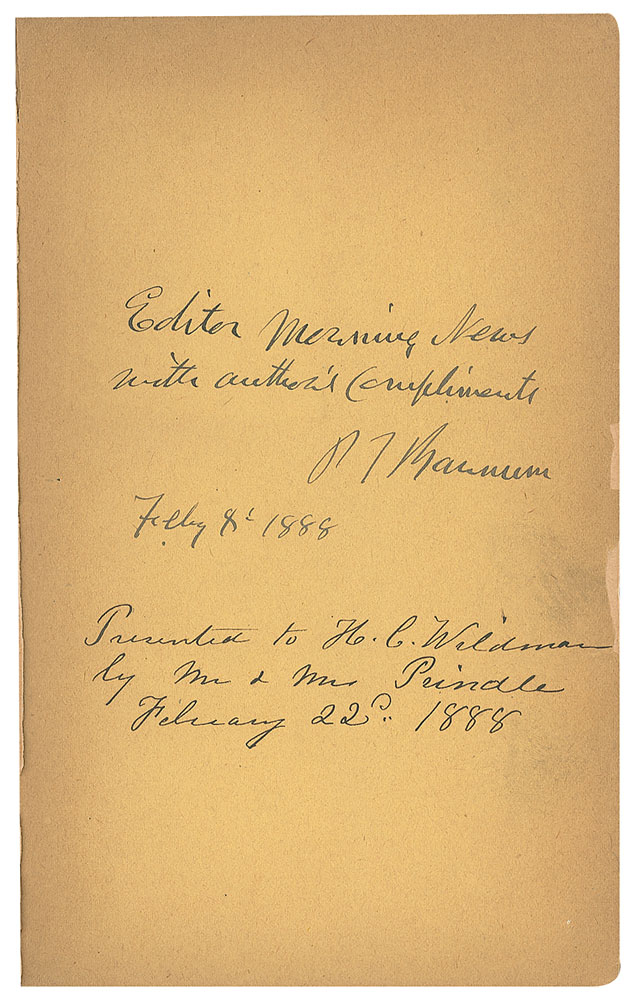 Editor Morning News
with author's Compliments
P T Barnum
Feby 8th 1888
Presented to H. C. Wildman
by Mr & Mrs Prindle
February 22d. 1888